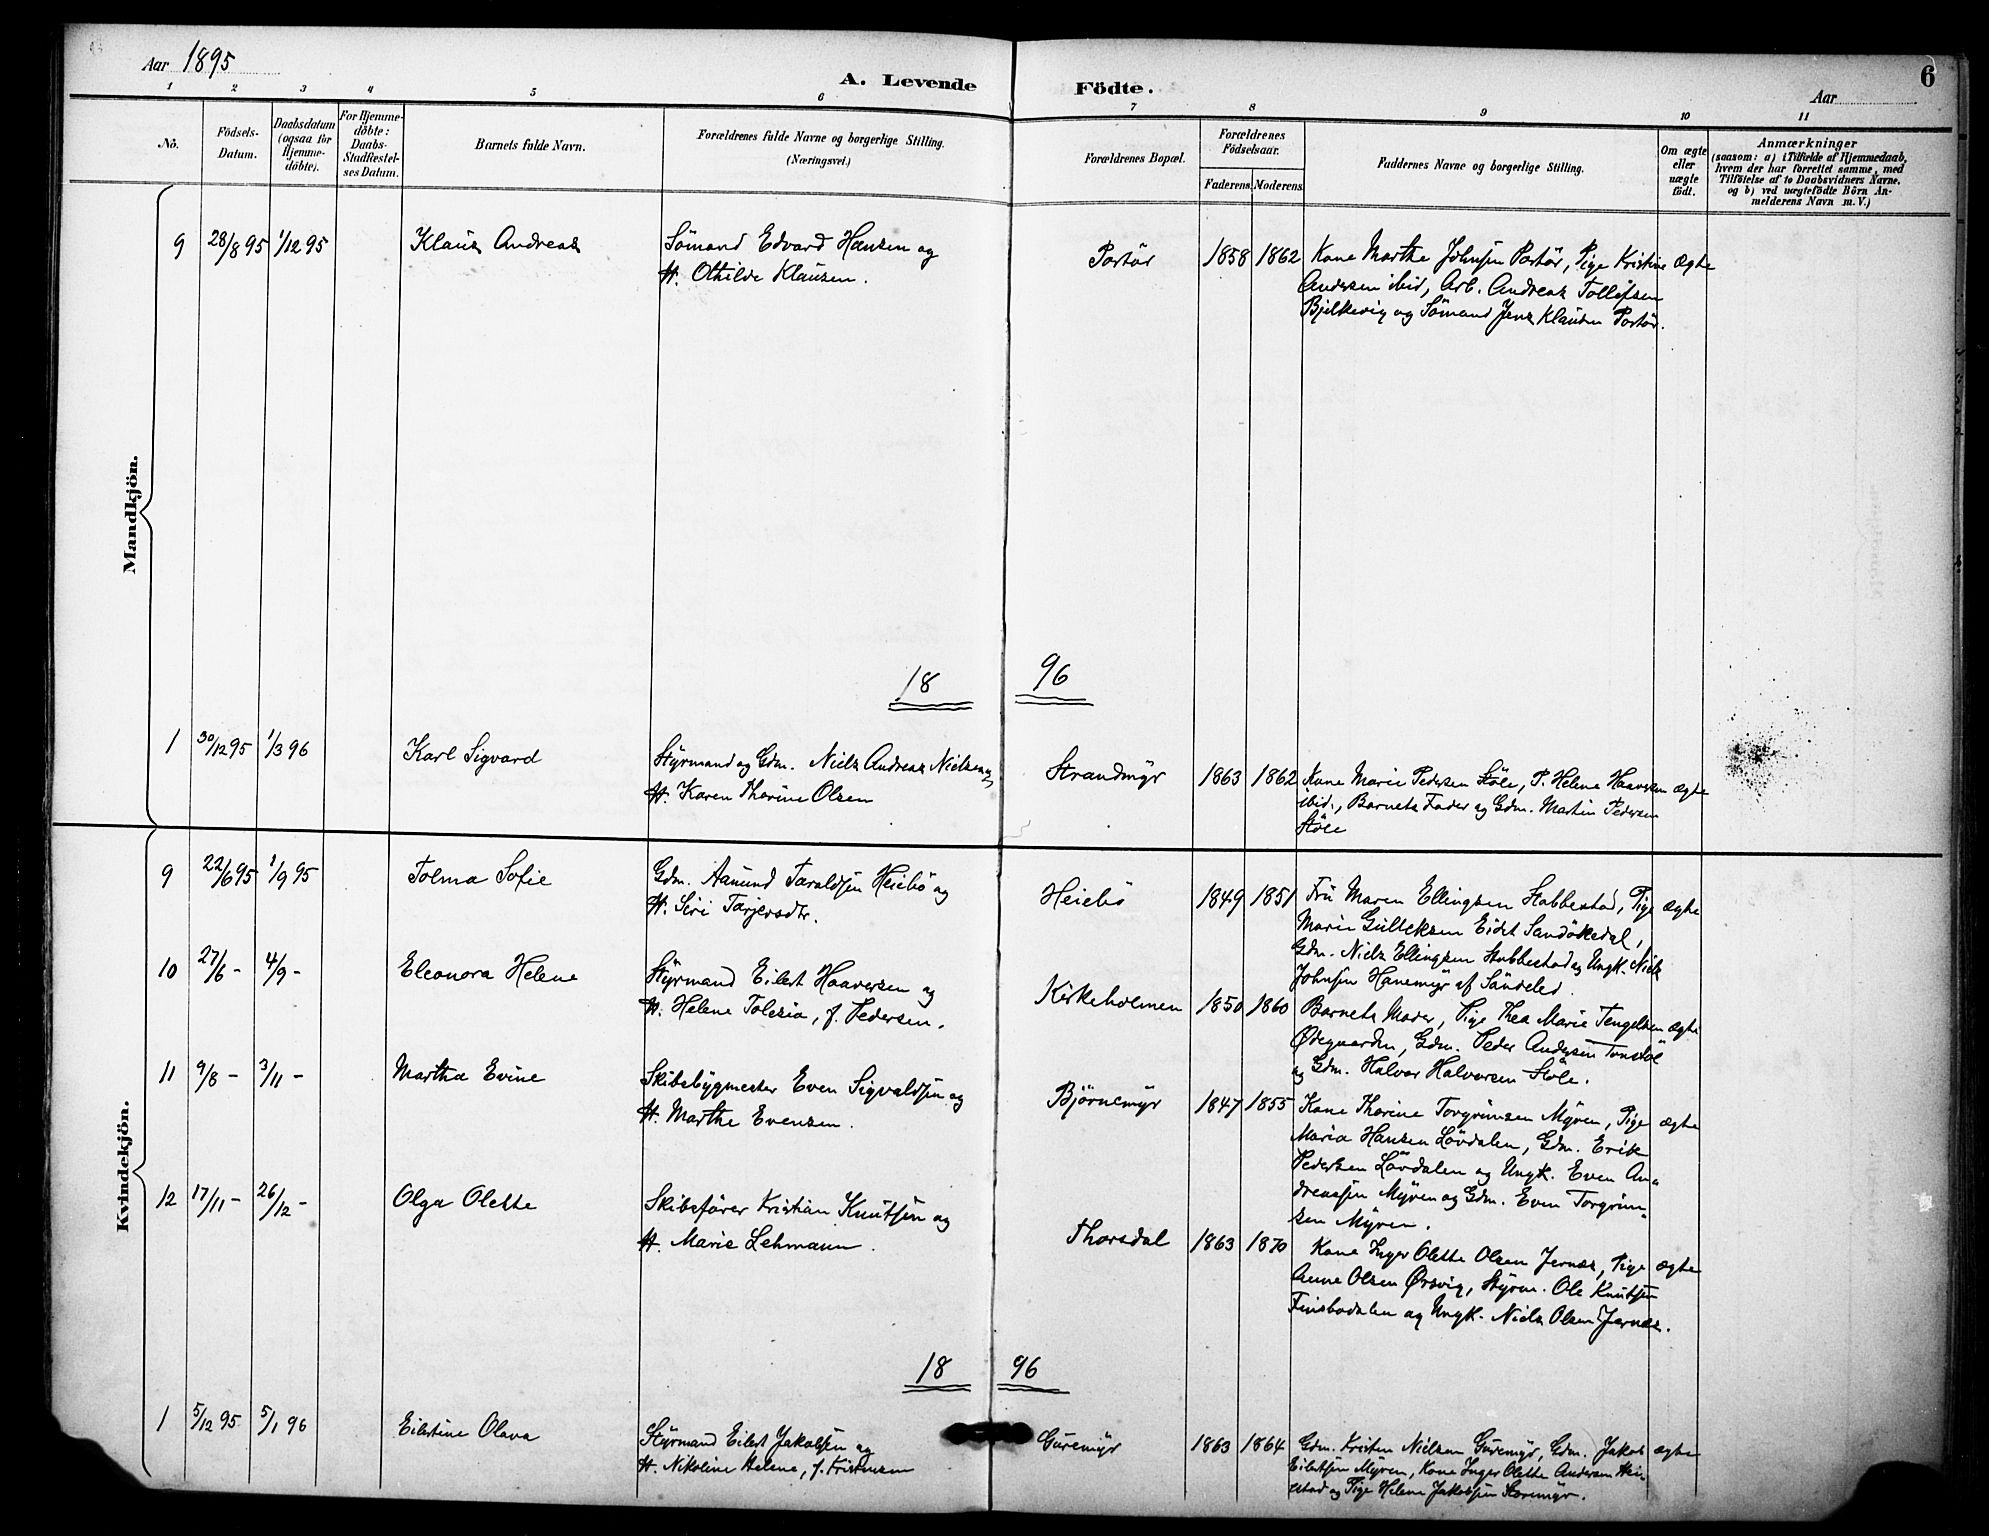 Aar 1895
A. Levende Födte.
6
Aar
1 2 3 4 5 6 7 8 9 10 11
No.
Födsels-
Datum.
Daabsdatum
(ogsaa for
Hjemme-
döbte).
For Hjemme-
döbte:
Daabs-
Stadfæstel-
ses Datum.
Barnets fulde Navn.
Forældrenes fulde Navne og borgerlige Stilling.
(Næringsvei.)
Forældrenes Bopæl.
Forældrenes
Födselsaar.
Faderens. Moderens.
Faddernes Navne og borgerlige Stilling.
Om ægte
eller
uægte
födt.
Anmærkninger
(saasom: a) i Tilfælde af Hjemmedaab,
hvem der har forrettet samme, med
Tilföielse af to Daabsvidners Navne,
og b) ved uægtefödte Börn An-
melderens Navn m. V.)
Mandkjön.
9 28/8 95 1/12 95 Klaus Andreas Sömand Edvard Hansen og
H. Othilde Klausen.
Portör 1858 1862 Kone Marthe Johnsen Portör, Pige Kristine ægte
Andersen ibid, Arb. Andreas Tollefsen
Bjelkevig og Sömand Jens Klausen Portör.
18 96
1 30/12 95 1/3 96 Karl Sigvard Styrmand og Gdm. Niels Andreas Nielsen og
H. Karen Thorine Olsen
Strandmyr 1863 1862 Kone Marie Pedersen Stöle, P. Helene Haavorsen ægte
ibid., Barnets Fader og Gdm. Martin Pedersen
Stöle
Kvindekjön.
9 22/6 95 1/9 95 Tolma Sofie Gdm. Aanund Taraldsen Heiebö og
H. Siri Tarjersdtr.
Heiebö 1849 1851 Fru Maren Ellingsen Stabbestad, Pige ægte
Marie Gulleksen Eidet Sandökedal,
Gdm. Niels Ellingsen Stabbestad og Ungk. Niels
Johnsen Hanemyr af Söndeled.
10 27/6 - 4/9 - Eleonora Helene Styrmand Eilert Haaversen og
H. Helene Tolesia, f. Pedersen.
Kirkeholmen 1850 1860 Barnets Moder, Pige Thea Marie Tengelsen ægte
Ødegaarden, Gdm. Peder Andersen Tonstöl
og Gdm. Halvor Halvorsen Stöle.
11 9/8 - 3/11 - Martha Evine Skibsbygmester Even Sigvaldsen og
H. Marthe Evensen.
Bjørnemyr 1847 1855 Kone Thorine Torgrimsen Myren, Pige ægte
Maria Hansen Lövdalen, Gdm. Erik
Pedersen Lövdalen og Ungk. Even An-
dreassen Myren og Gdm. Even Torgrim-
sen Myren.
12 17/11 - 26/12 - Olga Olette Skibsfører Kristian Knutsen og
H. Marie Lehmann.
Thorsdal 1863 1870 Kone Inger Olette Olsen Jernæs, Pige ægte
Anne Olsen Ørsvig, Styrm. Ole Knutsen
Finsbodalen og Ungk. Niels Olsen Jernæs.
18 96
1 5/12 95 5/1 96 Eilertine Olava Styrmand Eilert Jakobsen og
H. Nikoline Helene, f. Kristensen
Guremyr 1863 1864 Gdm. Kristen Nielsen Guremyr, Gdm. Jakob ægte
Eilertsen Myren, Kone Inger Olette Andersen Hei-
stad og Pige Helene Jakobsen Storemyr.